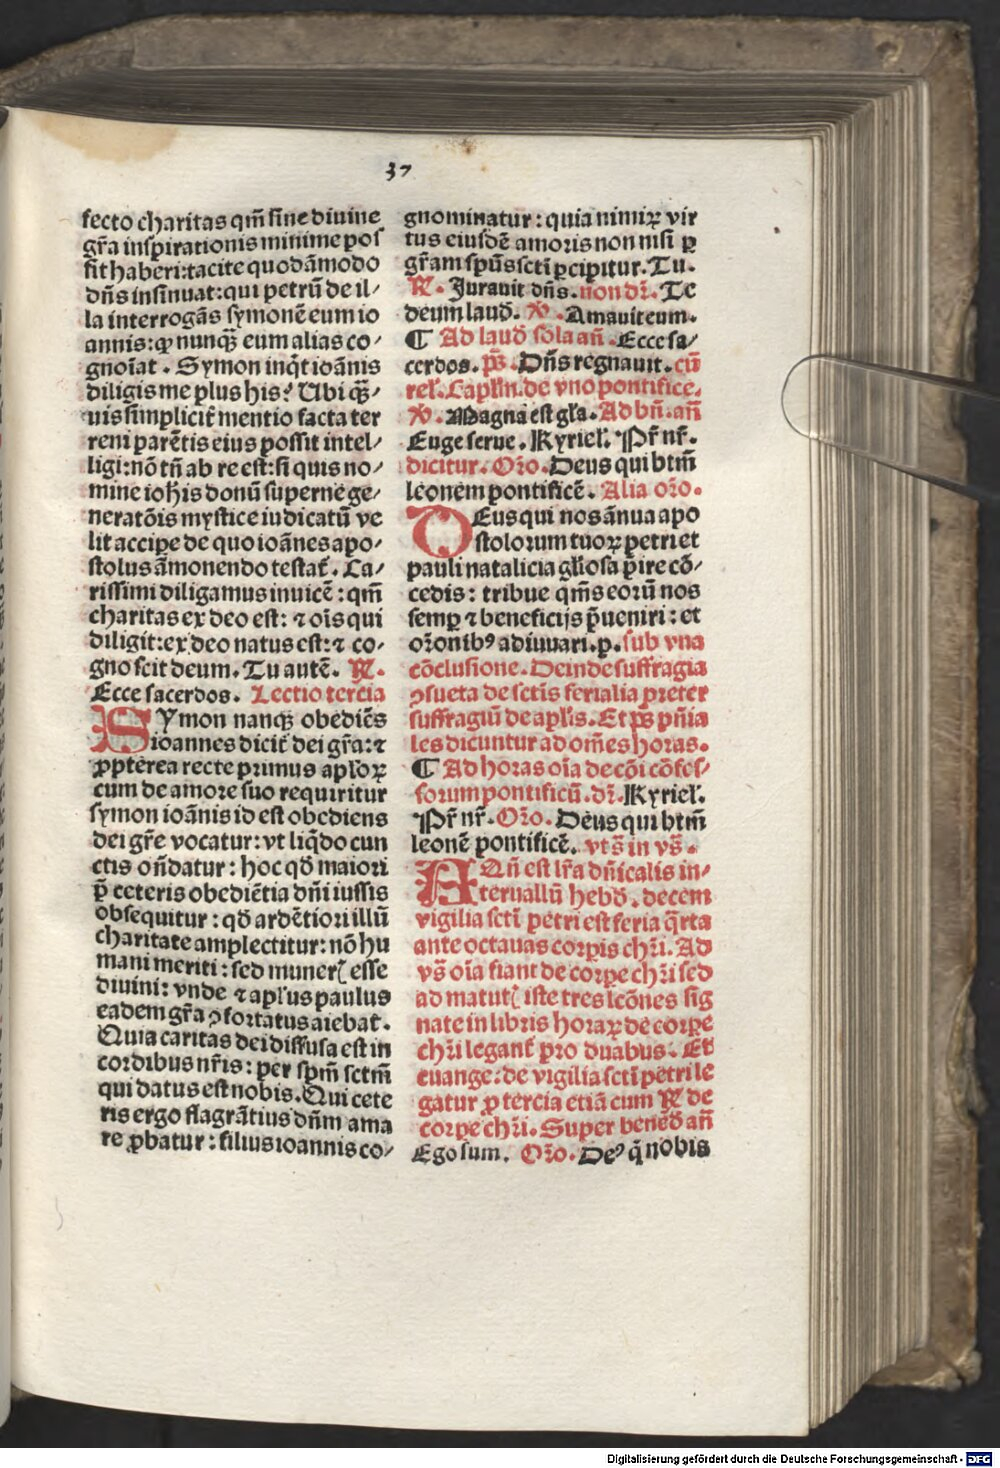 37
fecto charitas qm̃ sine diuine
gr̃a inspirationis minime pos
sit haberi:tacite quodãmodo
dñs insinuat:qui petrũ de il⸗
la interrogãs symonẽ eum io
annis:ꝙ nunqꝫ eum alias co⸗
gnoĩat. Symon inq̃t ioãnis
diligis me plus his? Ubi qꝫ̃⸗
uis simplicit̃ mentio facta ter
reni parẽtis eius possit intel⸗
ligi:nõ tñ ab re est:si quis no⸗
mine ioh̃is donũ superne ge⸗
neratõis mystice iudicatũ ve
lit accipe de quo ioãnes apo⸗
stolus ãmonendo testat̃. Ca⸗
rissimi diligamus inuicẽ: qm̃
charitas ex deo est: ⁊ oĩs qui
diligit:ex deo natus est:⁊ co⸗
gnoscit deum. Tu autẽ. ℟.
Ecce sacerdos. Lectio tercia
SYmon nanqꝫ obediẽs
ioannes dicit̃ dei gr̃a:⁊
ꝓpterea recte primus apl̃oꝝ
cum de amore suo requiritur
symon ioãnis id est obediens
dei gr̃e vocatur: vt liq̃do cun
ctis oñdatur: hoc qđ maiori
p̃ ceteris obediẽtia dñi iussis
obsequitur: qđ ardẽtiori illũ
charitate amplectitur: nõ hu
mani meriti: sed muneris esse
diuini: vnde ⁊ apl̃us paulus
eadem gr̃a ꝯfortatus aiebat.
Quia caritas dei diffusa est in
cordibus nr̃is: per spm̃ sctm̃
qui datus est nobis. Qui cete
ris ergo flagrãtius dñm ama
re ꝓbatur: filius ioannis co⸗
gnominatur: quia nimiꝝ vir
tus eiusdẽ amoris non nisi ꝑ
gr̃am spũs scti ꝑcipitur. Tu.
℟. Jurauit dñs. non dr̃. Te
deum lauđ. ℣. Amauit eum.
¶ Ad lauđ sola añ. Ecce sa⸗
cerdos. p̃s. Dñs regnauit. cũ
rel̃. Caplm̃. de vno pontifice.
℣. Magna est gl̃a. Ad bñ. añ
Euge serue. Kyriel̃. Pr̃ nr̃.
dicitur. Oro. Deus qui btm̃
leonem pontificẽ. Alia oro.
DEus qui nos ãnua apo
stolorum tuoꝝ petri et
pauli natalicia gl̃iosa p̃ire cõ⸗
cedis: tribue qm̃s eorũ nos
semꝑ ⁊ beneficijs p̃ueniri: et
orõnibꝰ adiuuari. p. sub vna
cõclusione. Deinde suffragia
ꝯsueta de sctis ferialia preter
suffragiũ de aplis. Et p̃s pñia
les dicuntur ad om̃es horas.
¶ Ad horas oĩa de cõi cõfes⸗
sorum pontificũ. dr̃. Kyriel̃.
Pr̃ nr̃. Oro. Deus qui btm̃
leonẽ pontificẽ. vts̃ in vs̃.
AQñ est lr̃a dñicalis in⸗
teruallũ hebđ. decem
vigilia scti petri est feria q̃rta
ante octauas corꝑis chr̃i. Ad
vs̃ oĩa fiant de corꝑe chr̃i sed
ad matutis iste tres lcõnes sig
nate in libris horaꝝ de corꝑe
chr̃i legant̃ pro duabus. Et
euange: de vigilia scti petri le
gatur ꝓ tercia etiã cum ℟ de
corpe chr̃i. Super beneđ añ
Ego sum. Oro. Deꝰ q̃ nobis
Digitalisierung gefördert durch die Deutsche Forschungsgemeinschaft - DFG